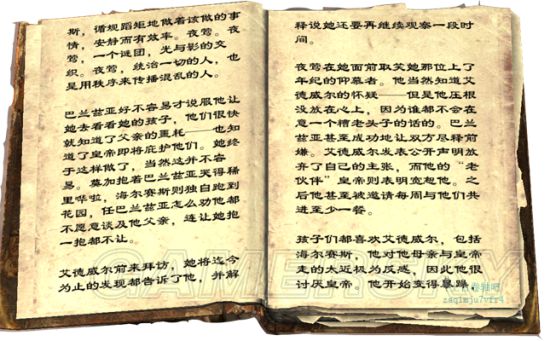 斯，循规蹈矩地做着该做的事
情，安静而有效率。夜莺。夜
莺，一个谜团，光与影的交
织。夜莺，统治一切的人，也
是用秩序来传播混乱的人。
巴兰兹亚好不容易才说服他让
她去看看她的孩子，他们很快
就知道了父亲的噩耗——也知
道了皇帝即将庇护他们。她终
于这样做了，当然这并不容
易。莫加抱着巴兰兹亚哭得稀
里哗啦，海尔赛斯则独自跑到
花园，任巴兰兹亚怎么劝他都
不愿意谈及他父亲，连让她抱
一抱都不让。
艾德威尔前来拜访，她将迄今
为止的发现都告诉了他，并解
释说她还要再继续观察一段时
间。
夜莺在她面前取笑她那位上了
年纪的仰慕者。他当然知道艾
德威尔的怀疑——但是他压根
没放在心上，因为谁都不会在
意一个糟老头子的话的。巴兰
兹亚甚至成功地让双方尽释前
嫌。艾德威尔发表公开声明放
弃了自己的主张，而他的“老
伙伴”皇帝则表明宽恕他。之
后他甚至被邀请每周与他们共
进至少一餐。
孩子们都喜欢艾德威尔，包括
海尔赛斯，他对他母亲与皇帝
走的太近极为反感，因此他很
讨厌皇帝。他开始变得暴躁，
GAMERSKY
卷轴吧
zsqimju7vfr4